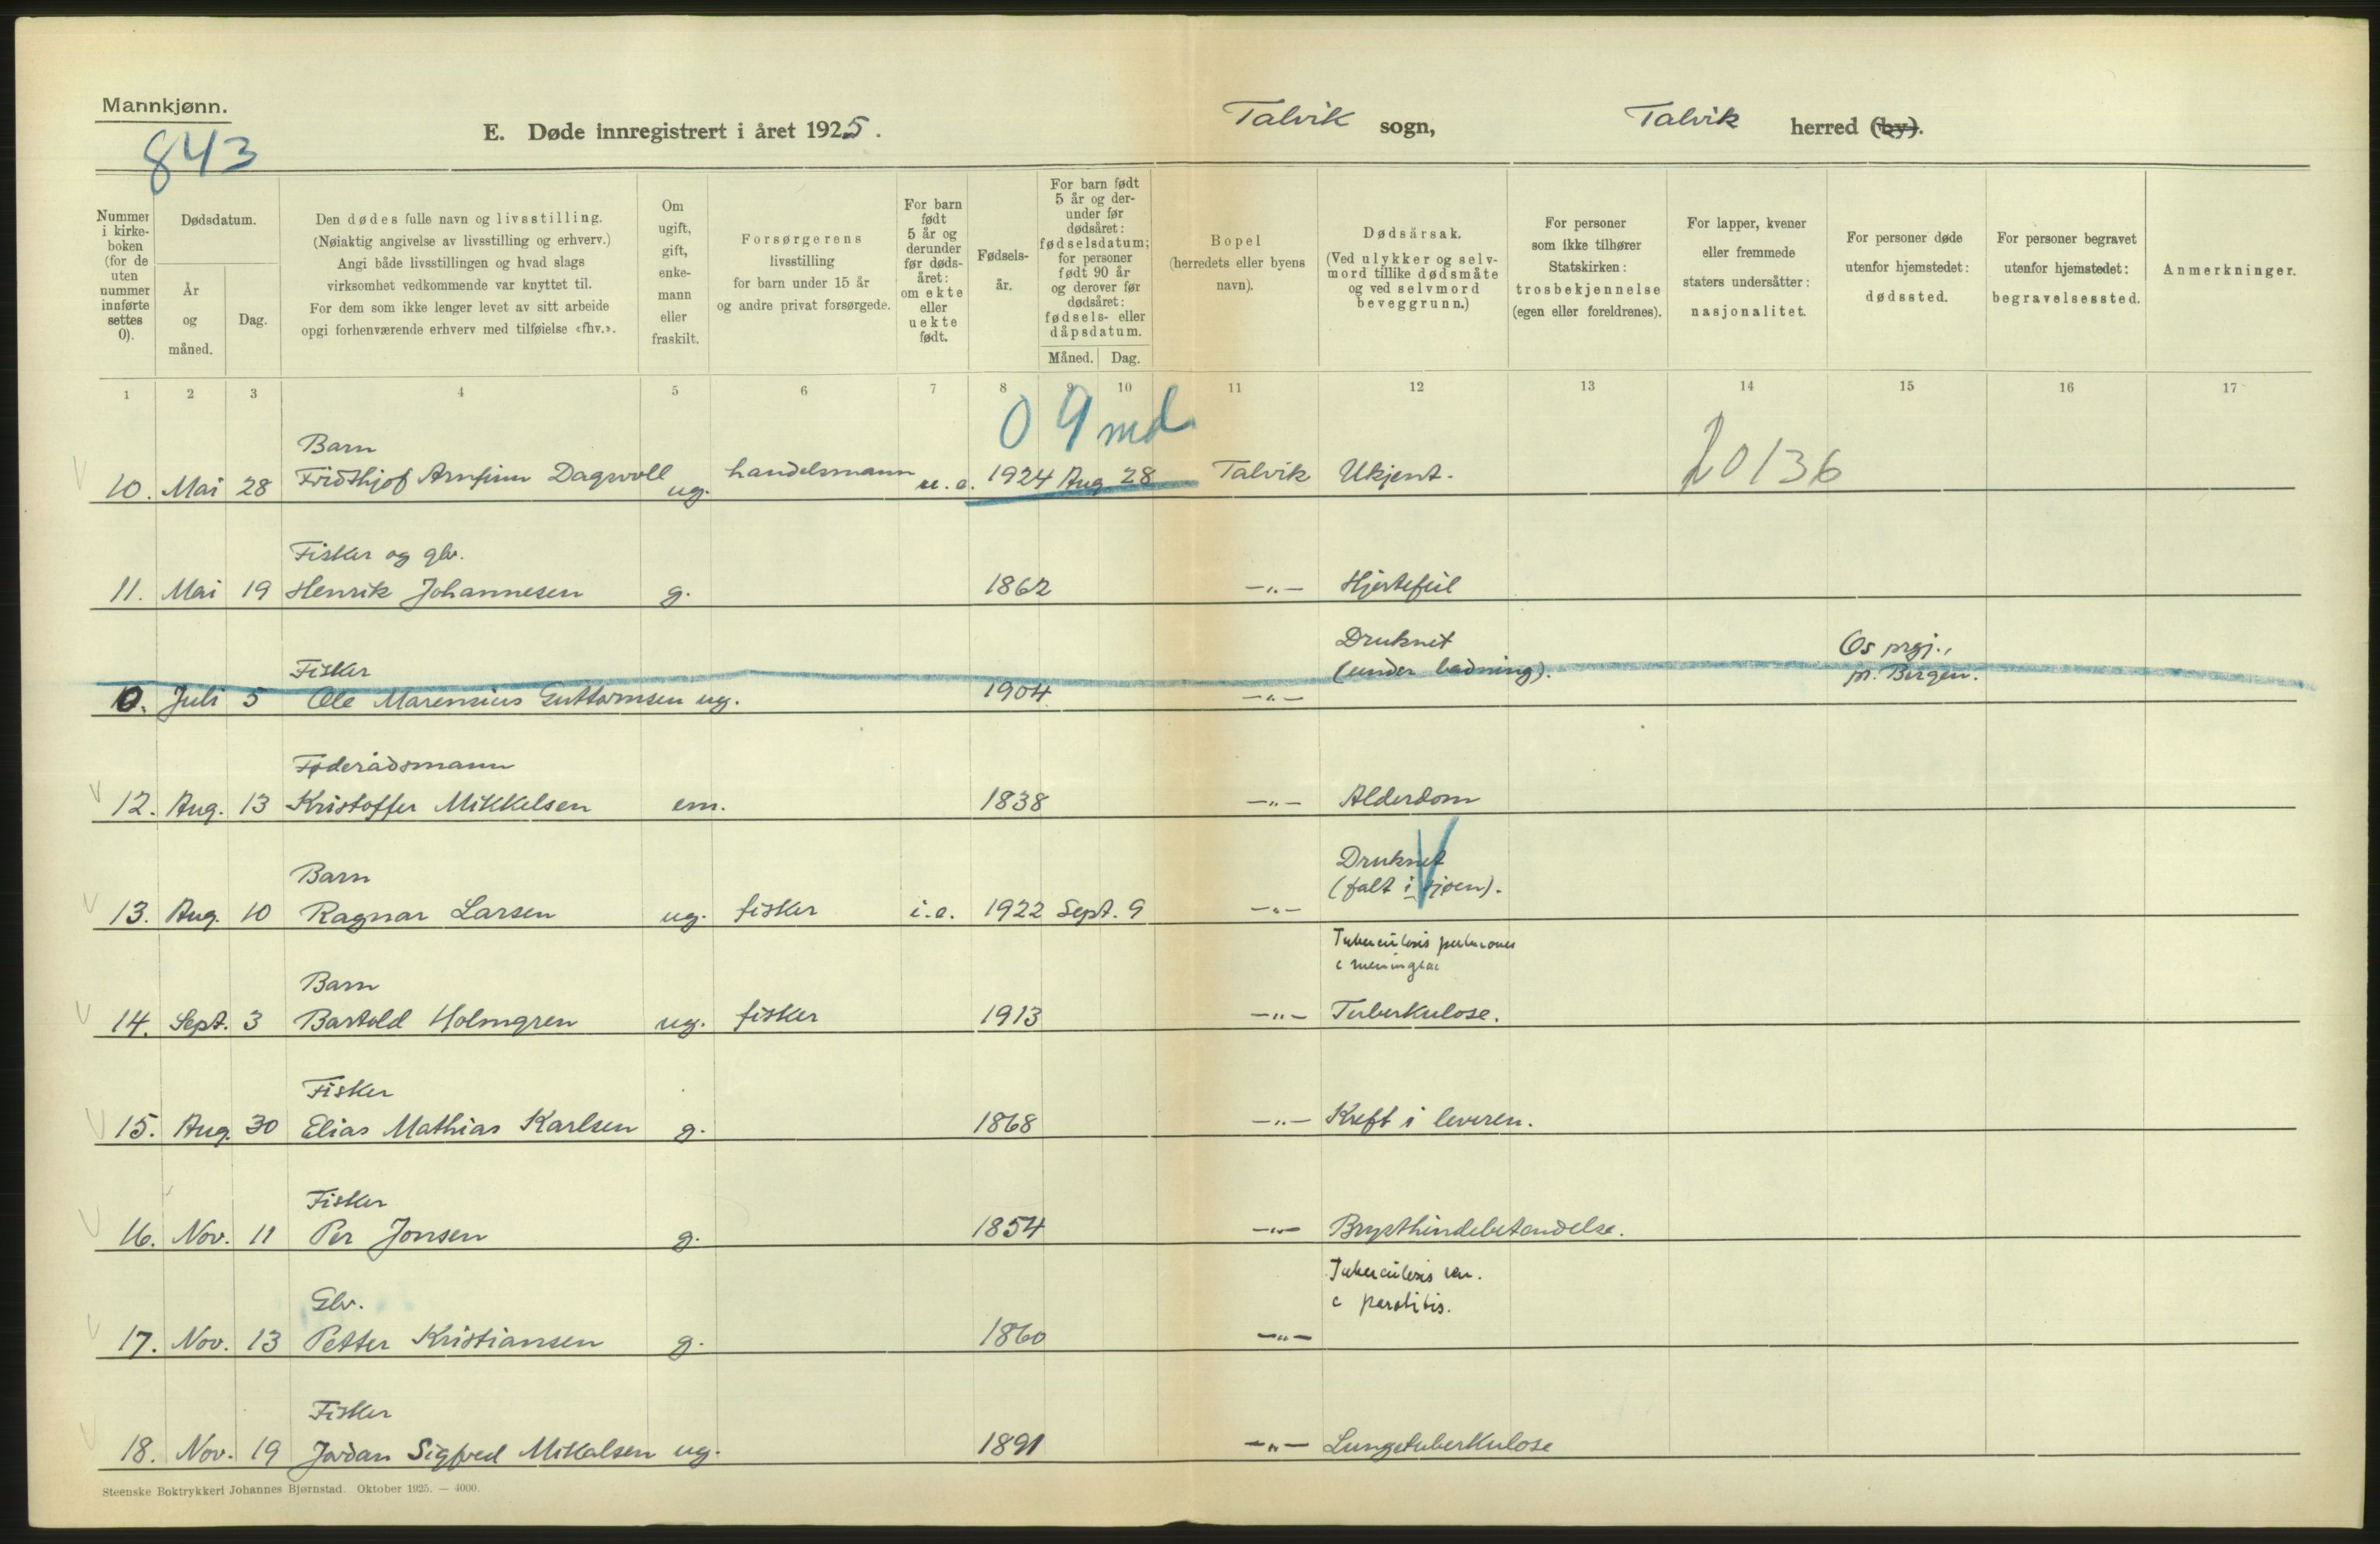 Mannkjønn.
843
E. Døde innregistrert i året 1925.
Talvik sogn,
Talvik herred (by).
Nummer i kirke-boken (for de uten nummer innførte settes 0).
Dødsdatum.
År og måned.
Dag.
Den dødes fulle navn og livsstilling.
(Nøiaktig angivelse av livsstilling og erhverv.)
Angi både livsstillingen og hvad slags
virksomhet vedkommende var knyttet til.
For dem som ikke lenger levet av sitt arbeide
opgi forhenværende erhverv med tilføielse «fhv.».
Om ugift, gift, enke-mann eller fraskilt.
Forsørgerens livsstilling
for barn under 15 år
og andre privat forsørgede.
For barn født 5 år og derunder før døds-året: om ekte eller uekte født.
Fødsels-år.
For barn født 5 år og der-under før dødsåret: fødselsdatum; for personer født 90 år og derover før dødsåret: fødsels- eller dåpsdatum.
Måned. Dag.
Bopel
(herredets eller byens
navn).
Dødsårsak.
(Ved ulykker og selv-
mord tillike dødsmåte
og ved selvmord
beveggrunn.)
For personer
som ikke tilhører
Statskirken:
trosbekjennelse
(egen eller foreldrenes).
For lapper, kvener
eller fremmede
staters undersåtter:
nasjonalitet.
For personer døde
utenfor hjemstedet:
dødssted.
For personer begravet
utenfor hjemstedet:
begravelsessted.
Anmerkninger.
1 2 3 4 5 6 7 8 9 10 11 12 13 14 15 16 17
0 9 md
Barn
10. Mai 28 Fridthjof Arnfinn Dagsvoll ug. handelsmann u.e. 1924 Aug 28 Talvik Ukjent. 20136
Fisker og gbr.
11. Mai 19 Henrik Johannesen g. 1862 —"— Hjertefeil
Fisker Druknet (under badning). Os prgj., pr. Bergen.
0. Juli 5 Ole Marensius Guttormsen ug. 1904 —"—
Føderådsmann
12. Aug. 13 Kristoffer Mikkelsen em. 1838 —"— Alderdom
Barn Druknet (falt i sjøen).
13. Aug. 10 Ragnar Larsen ug. fisker i.e. 1922 Sept. 9 —"—
Tuberculosis pulmones
c meningeae
Barn
14. Sept. 3 Bartold Holmgren ug. fisker 1913 —"— Tuberkulose.
Fisker
15. Aug. 30 Elias Mathias Karlsen g. 1868 —"— Kreft i leveren.
Fisker
16. Nov. 11 Per Jonsen g. 1854 —"— Brysthindebetendelse.
Gbr. Tuberculosis ren. c parotitis.
17. Nov. 13 Petter Kristiansen g. 1860 —"—
Fisker
18. Nov. 19 Jordan Sigfred Mikalsen ug. 1891 —"— Lungetuberkulose
Steenske Boktrykkeri Johannes Bjørnstad. Oktober 1925. — 4000.